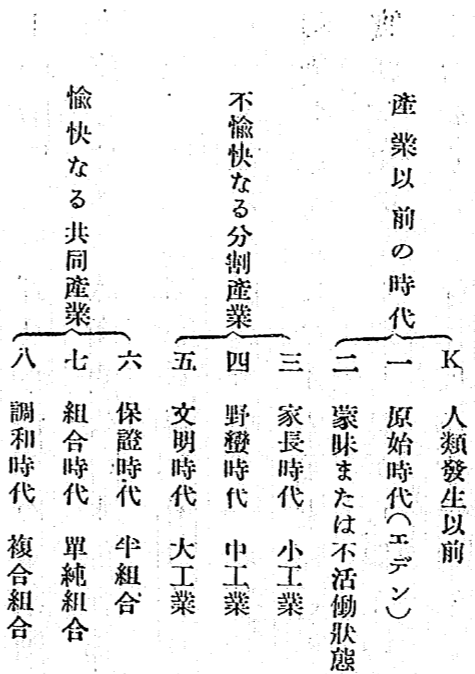 產業以前の時代
K 人類發生以前
一 原始時代(エデン)
二 蒙昧または不活働狀態
不愉快なる分割產業
三 家長時代 小工業
四 野蠻時代 中工業
五 文明時代 大工業
愉快なる共同產業
六 保證時代 半組合
七 組合時代 單純組合
八 調和時代 複合組合